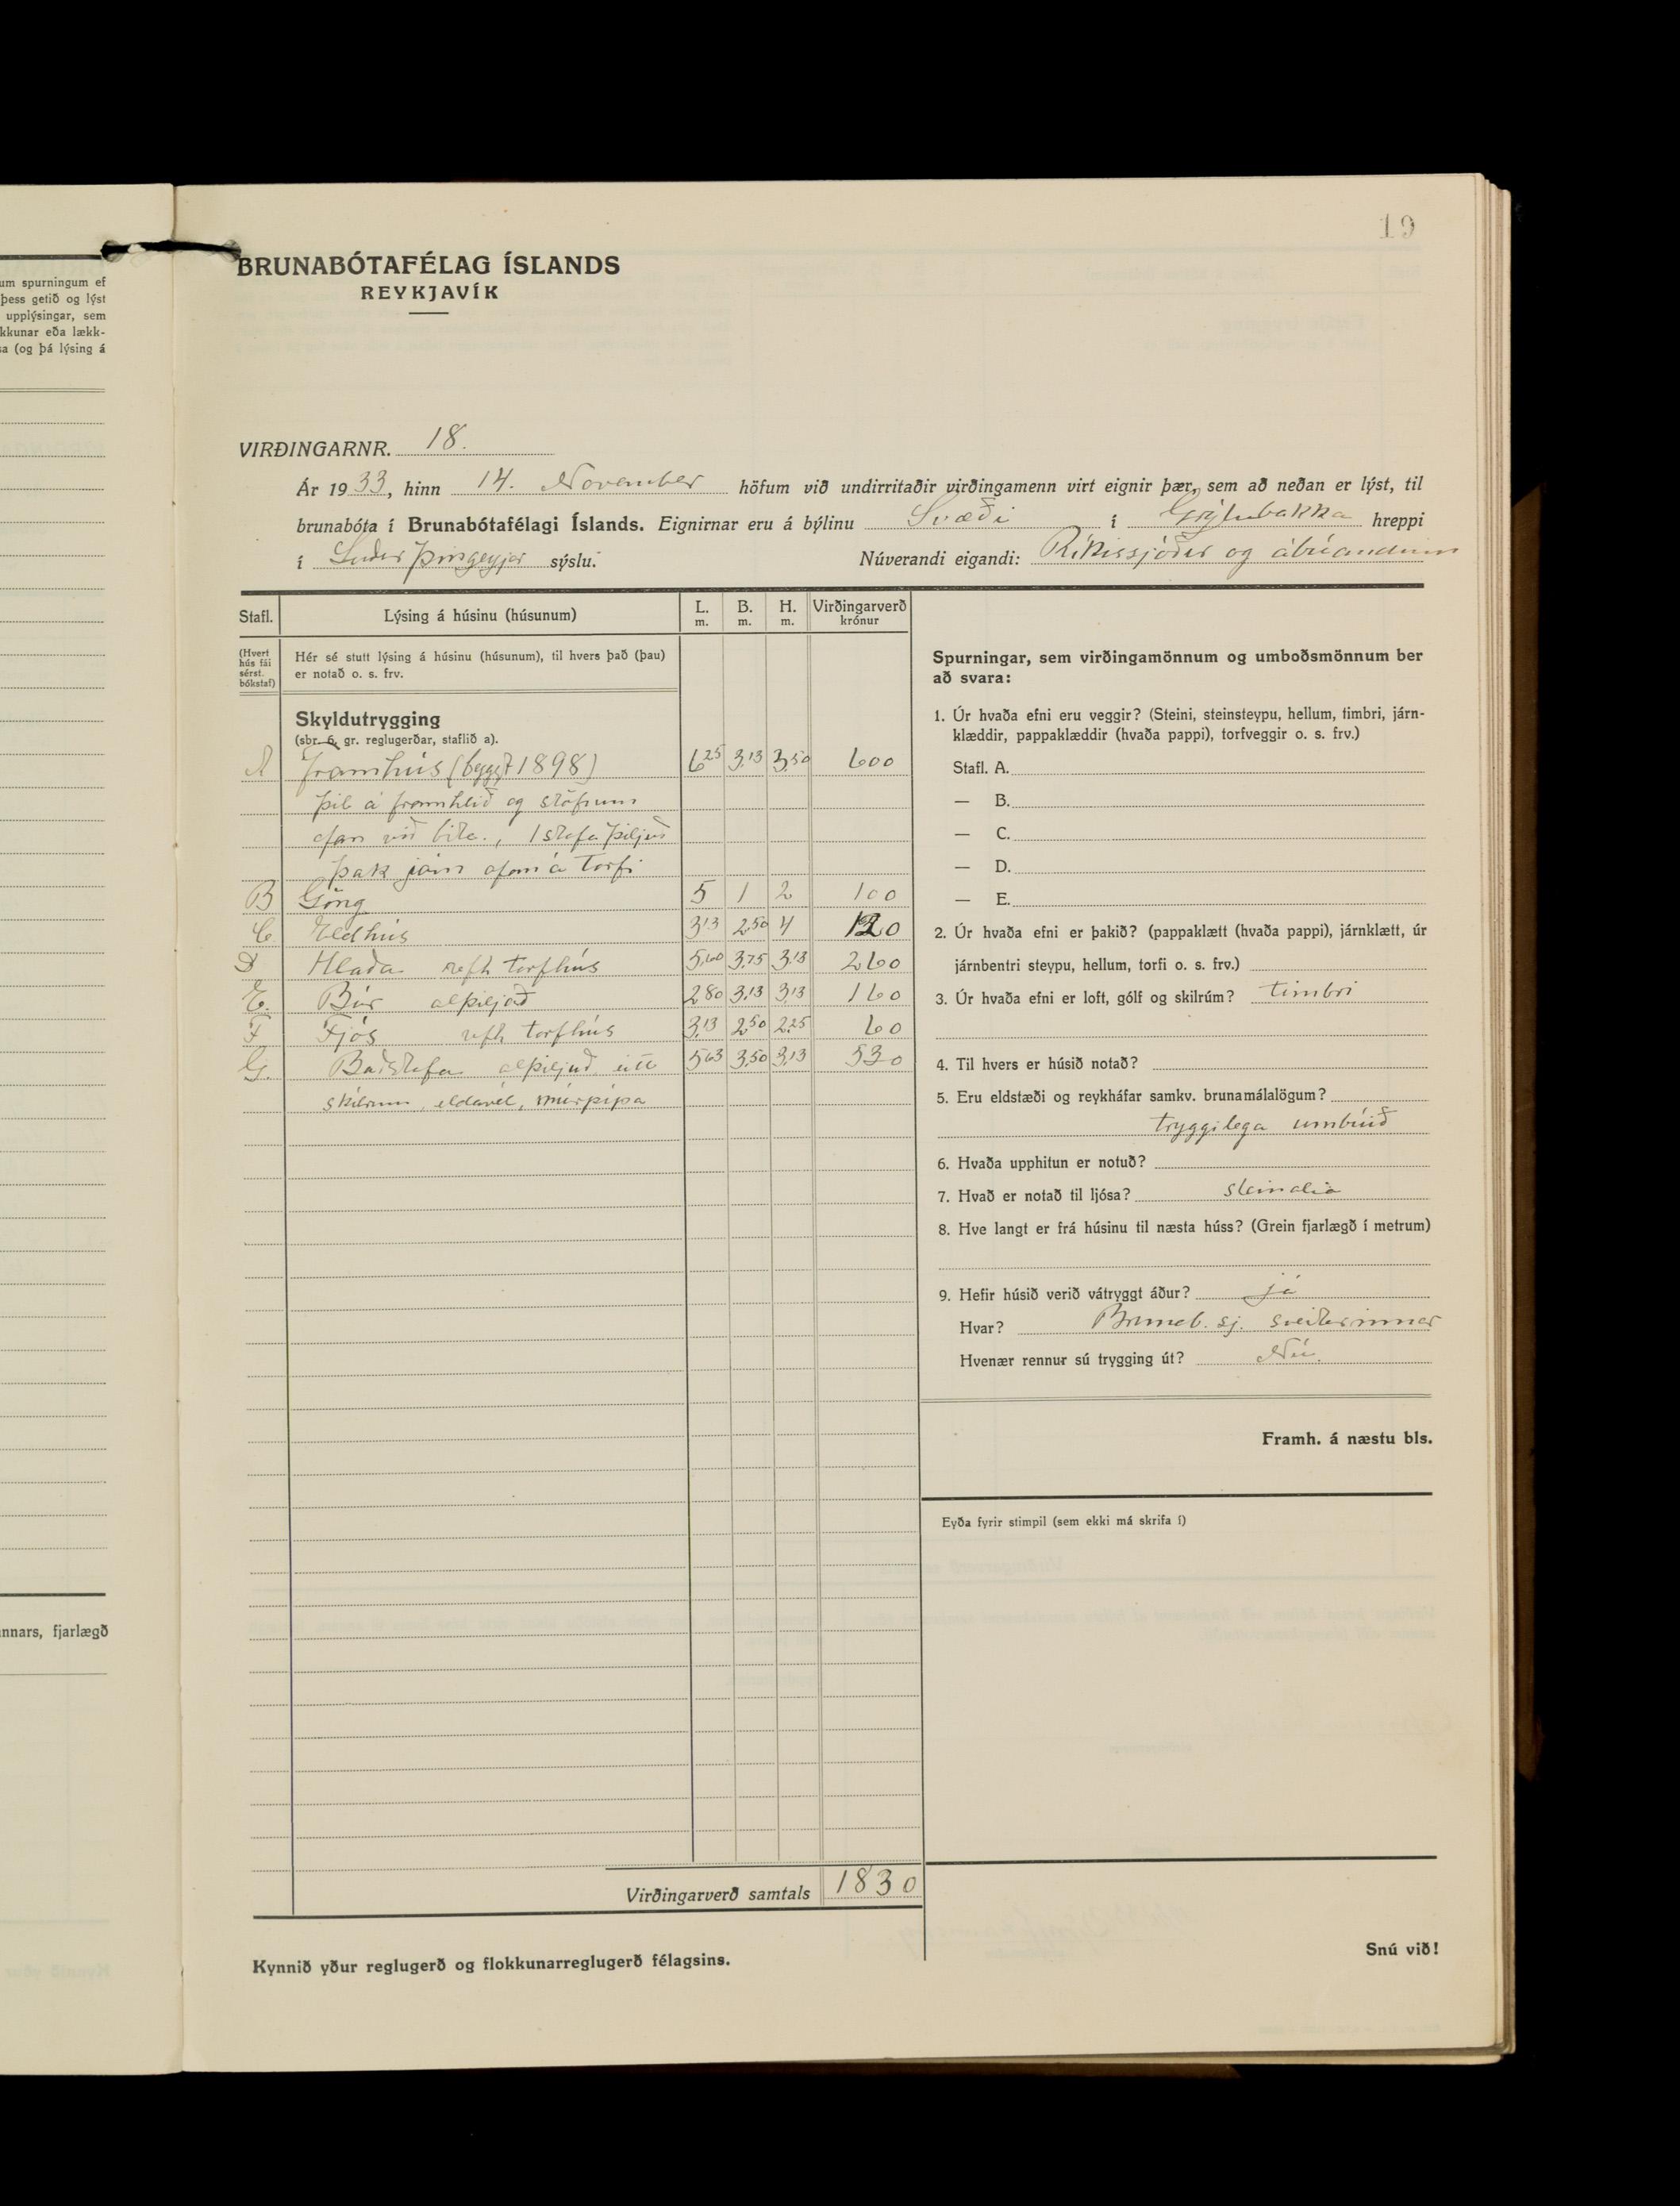 um spurningum ef
þess getið og lýst
upplýsingar, sem
kkunar eða lækk-
sa (og þá lýsing á
nnars, fjarlægð
19
BRUNABÓTAFÉLAG ÍSLANDS
REYKJAVÍK
VIRÐINGARNR. 18.
Ár 1933, hinn 14. November höfum við undirritaðir virðingamenn virt eignir þær, sem að neðan er lýst, til
brunabóta í Brunabótafélagi Íslands. Eignirnar eru á býlinu Svæði í Grýtubakka hreppi
í Suður Þingeyjar sýslu. Núverandi eigandi: Ríkissjóður og ábúandinn
Stafl. Lýsing á húsinu (húsunum) L. m. B. m. H. m. Virðingarverð krónur
(Hvert hús fái sérst. bókstaf) Hér sé stutt lýsing á húsinu (húsunum), til hvers það (þau)
er notað o. s. frv.
Skyldutrygging
(sbr. 6. gr. reglugerðar, staflið a).
A Framhús (byggt 1898) 6,25 3,13 3,50 600
þil á framhlið og stöfnum
ofan við bita., 1 stofa þiljuð
Þak járn ofan á torfi
B Göng 5 1 2 100
C Eldhús 3,13 2,50 4 120
D Hlaða refh torfhús 5,60 3,75 3,13 260
E. Búr alþiljað 2,80 3,13 3,13 160
F Fjós refh torfhús 3,13 2,50 2,25 60
G. Baðstofa alþiljuð eitt 5,63 3,50 3,13 530
skilrum, eldavél, múrpípa
Virðingarverð samtals 1830
Kynnið yður reglugerð og flokkunarreglugerð félagsins.
Spurningar, sem virðingamönnum og umboðsmönnum ber
að svara:
1. Úr hvaða efni eru veggir? (Steini, steinsteypu, hellum, timbri, járn-
klæddir, pappaklæddir (hvaða pappi), torfveggir o. s. frv.)
Stafl. A.
— B.
— C.
— D.
— E.
2. Úr hvaða efni er þakið? (pappaklætt (hvaða pappi), járnklætt, úr
járnbentri steypu, hellum, torfi o. s. frv.)
3. Úr hvaða efni er loft, gólf og skilrúm? timbri
4. Til hvers er húsið notað?
5. Eru eldstæði og reykháfar samkv. brunamálalögum?
tryggilega umbúið
6. Hvaða upphitun er notuð?
7. Hvað er notað til ljósa? steinolía
8. Hve langt er frá húsinu til næsta húss? (Grein fjarlægð í metrum)
9. Hefir húsið verið vátryggt áður? já
Hvar? Brunab. sj. sveitarinnar
Hvenær rennur sú trygging út? Nú.
Framh. á næstu bls.
Eyða fyrir stimpil (sem ekki má skrifa í)
Snú við!